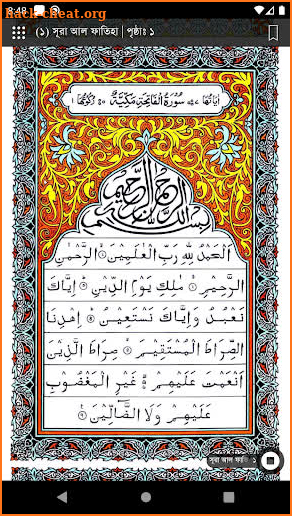 8:48
(১) সূরা আল ফাতিহা | পৃষ্ঠাঃ ১
اٰيَاتُهَا ٧ سُوْرَةُ الْفَاتِحَةِ مَكِّيَّةٌ رُكُوْعُهَا ١
بِسْمِ اللّٰهِ الرَّحْمٰنِ الرَّحِيْمِ
اَلْحَمْدُ لِلّٰهِ رَبِّ الْعٰلَمِيْنَ ۙ الرَّحْمٰنِ
الرَّحِيْمِ ۙ مٰلِكِ يَوْمِ الدِّيْنِ ؕ اِيَّاكَ
نَعْبُدُ وَاِيَّاكَ نَسْتَعِيْنُ ؕ اِهْدِنَا
الصِّرَاطَ الْمُسْتَقِيْمَ ۙ صِرَاطَ الَّذِيْنَ
اَنْعَمْتَ عَلَيْهِمْ ۙ غَيْرِ الْمَغْضُوْبِ
عَلَيْهِمْ وَلَا الضَّآلِّيْنَ
সূরা আল ফাতি ১
hack-cheat.org